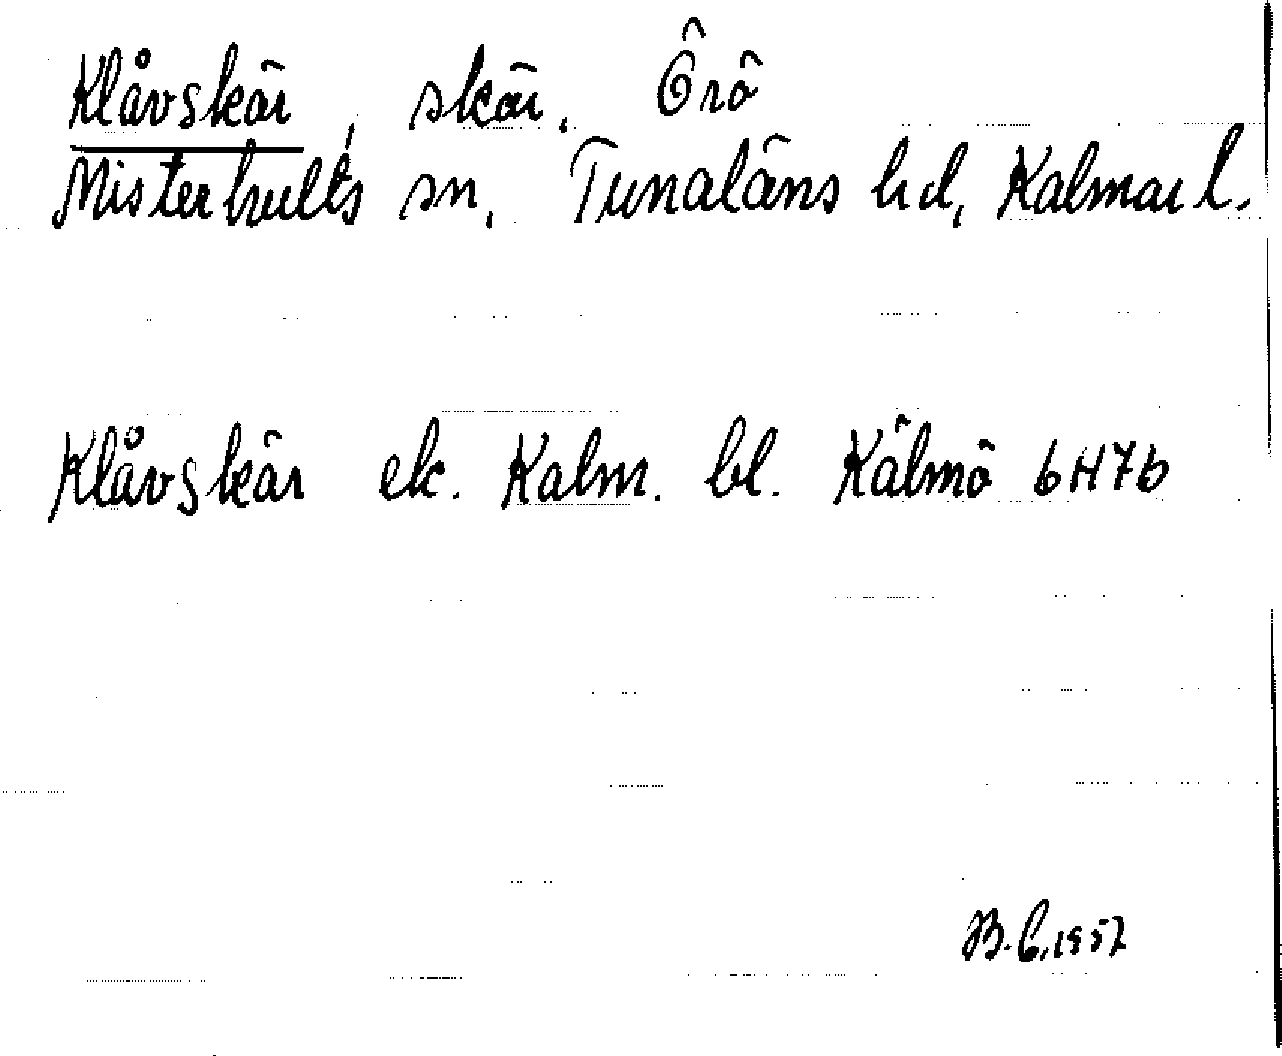 Klåvskär, skär. Örö
Misterhults sn, Tunaläns hd, Kalmar l.
Klåvskär ek. Kalm. bl. Kälmö 6H7b
B.C. 1957